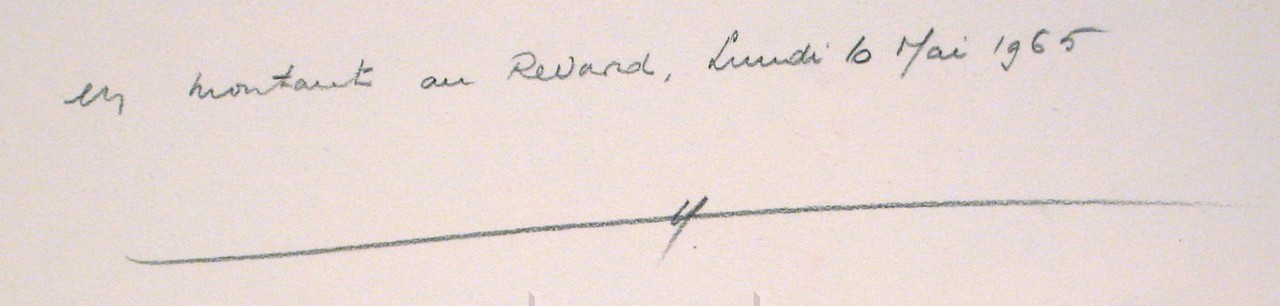 en montant au Revard, Lundi 10 Mai 1965